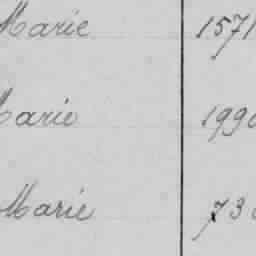 Marie 1571
Marie 1990
Marie 730